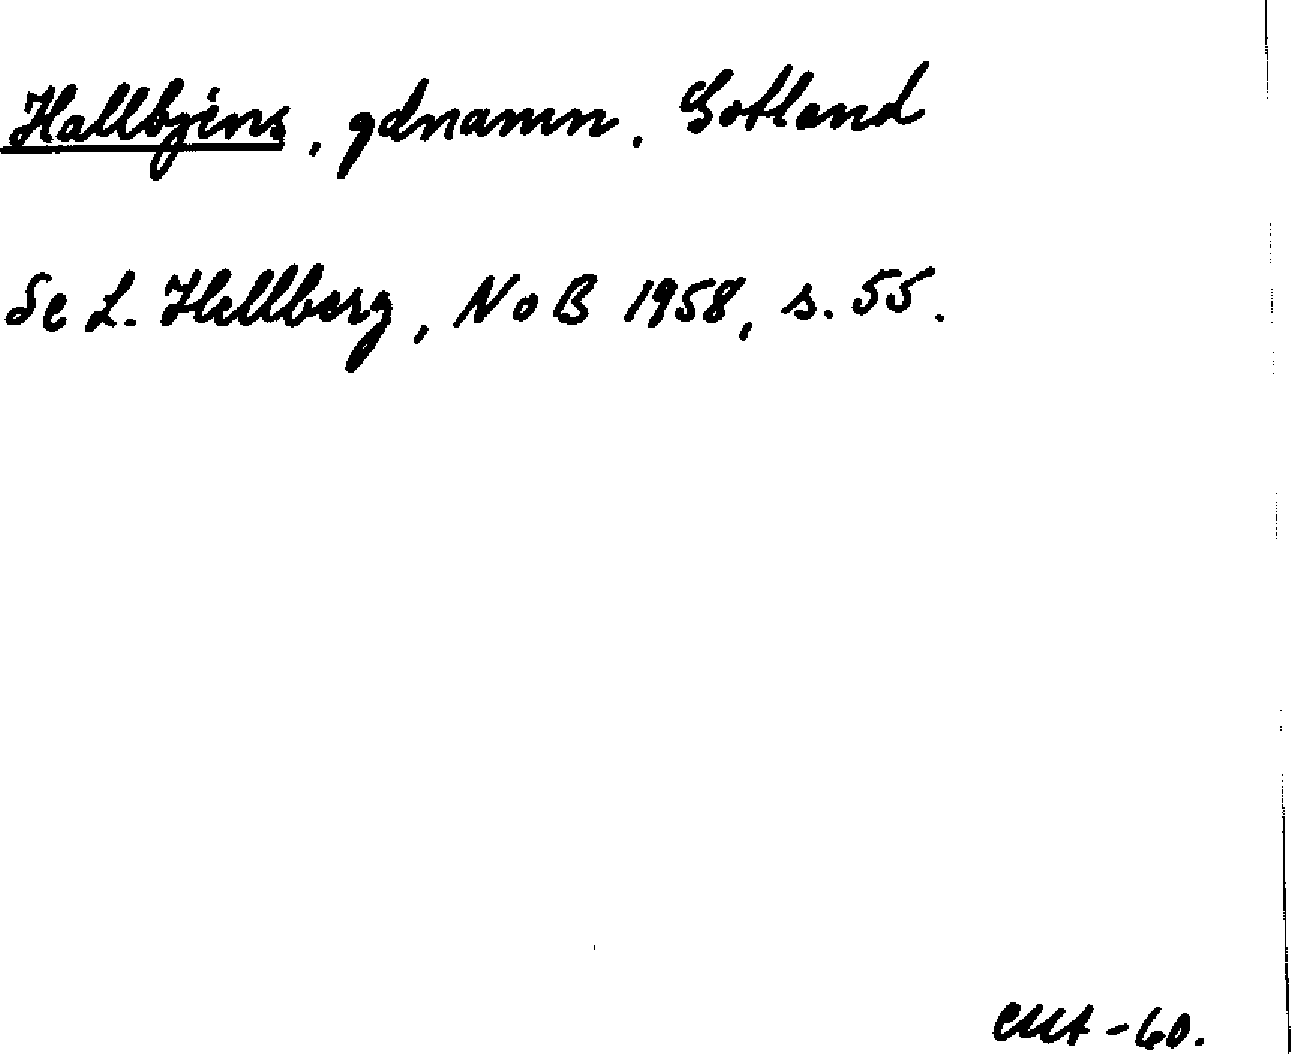 Hallbjens, gdnamn, Gotland
Se L. Hellberg, NoB 1958, s. 55.
-60.